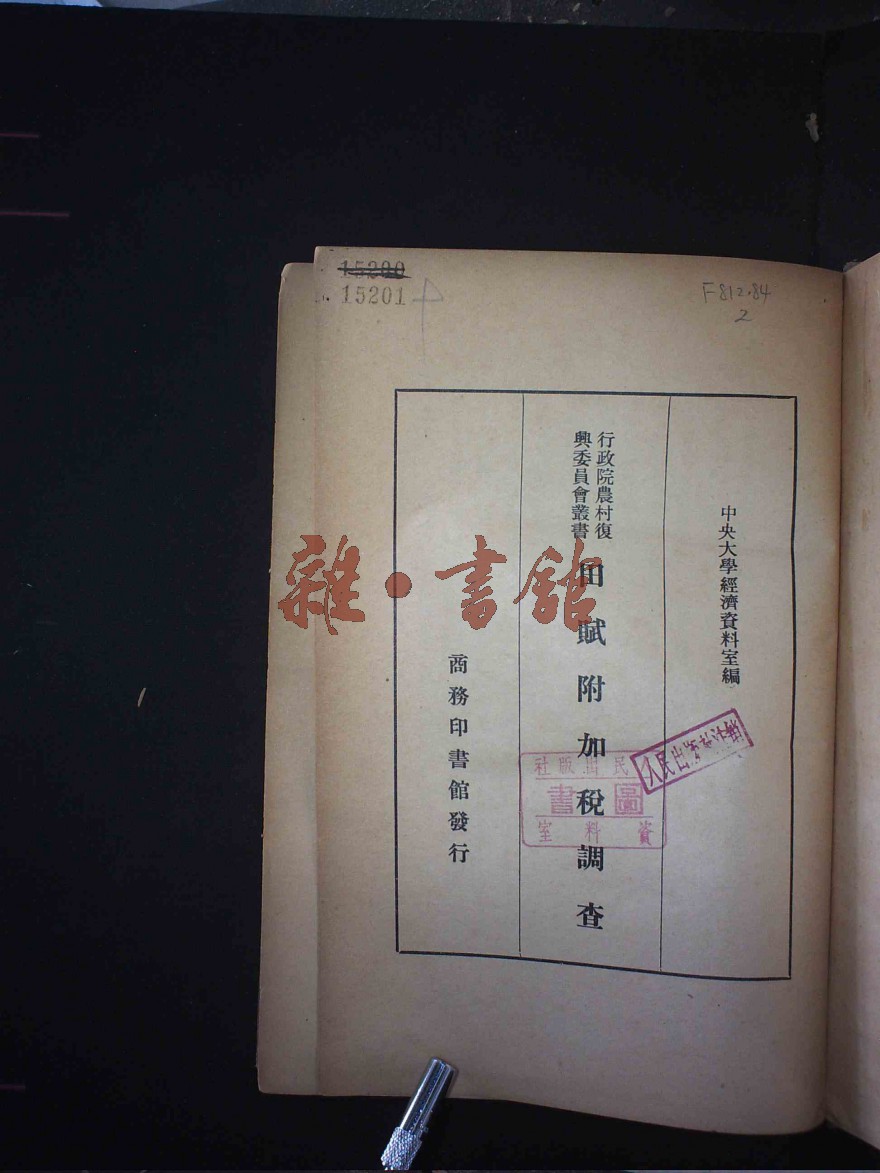 15200
15201
F812.84
2
中央大學經濟資料室編
行政院農村復
興委員會叢書
田賦附加稅調查
商務印書館發行
雜·書館
人民出版社註銷
人民出版社
圖書
資料室